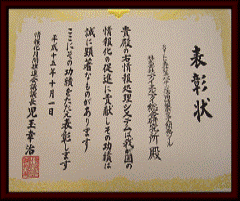 表彰状
殿
貴殿の右情報処理システムは我が国の
情報化の促進に貢献しその功績は
誠に顕著なものがあります
ここにその功績をたたえ表彰します
平成十五年十月一日
情報化月間推進会議議長 児玉幸治